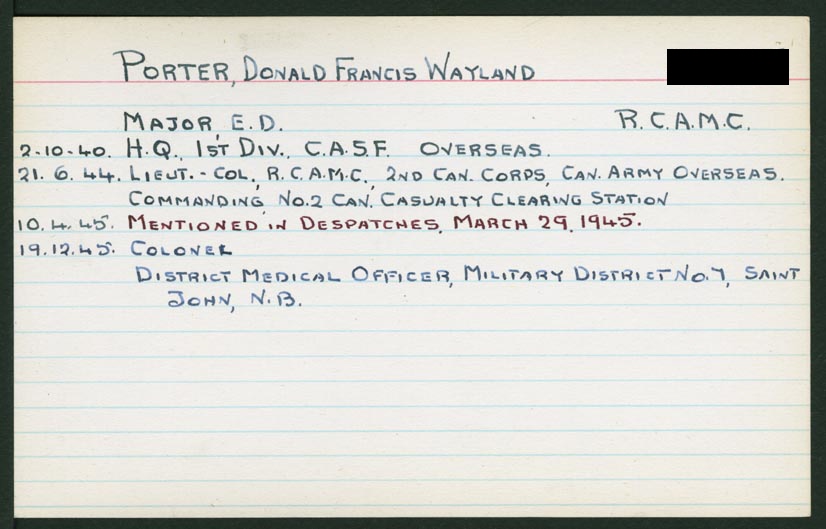 PORTER, DONALD FRANCIS WAYLAND
MAJOR, E.D. R.C.A.M.C.
2-10-40. H.Q., 1ST DIV., C.A.S.F. OVERSEAS.
21. 6. 44. LIEUT.-COL., R.C.A.M.C., 2ND CAN. CORPS, CAN. ARMY OVERSEAS.
COMMANDING NO.2 CAN. CASUALTY CLEARING STATION
10.4.45. MENTIONED IN DESPATCHES, MARCH 29, 1945.
19.12.45. COLONEL
DISTRICT MEDICAL OFFICER, MILITARY DISTRICT NO.7, SAINT
JOHN, N.B.